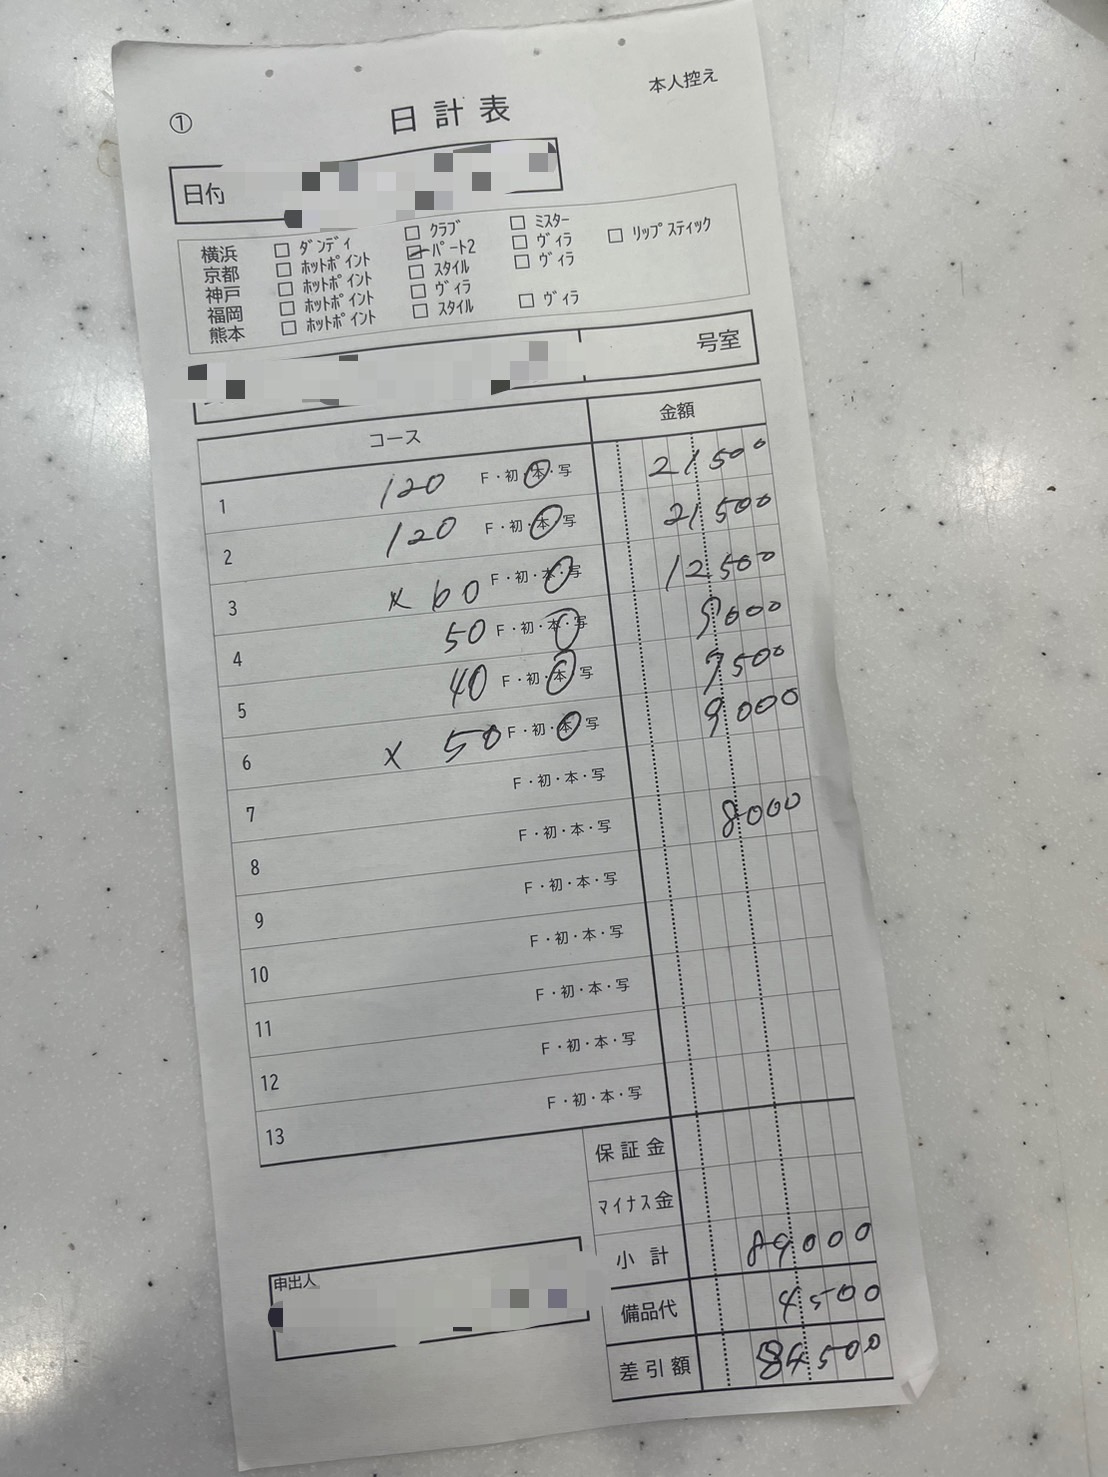 本人控え
① 日計表
日付
横浜 □ ダンディ □ クラブ □ ミスター □ リップスティック
京都 □ ホットポイント ☑ パート2 □ ヴィラ
神戸 □ ホットポイント □ スタイル □ ヴィラ
福岡 □ ホットポイント □ ヴィラ
熊本 □ ホットポイント □ スタイル □ ヴィラ
号室
コース 金額
1 120 F・初・本・写 21500
2 120 F・初・本・写 21500
3 × 60 F・初・本・写 12500
4 50 F・初・本・写 9000
5 40 F・初・本・写 7500
6 × 50 F・初・本・写 9000
7 F・初・本・写
8 F・初・本・写 8000
9 F・初・本・写
10 F・初・本・写
11 F・初・本・写
12 F・初・本・写
13 F・初・本・写
保証金
マイナス金
小計 89000
申出人
備品代 4500
差引額 84500